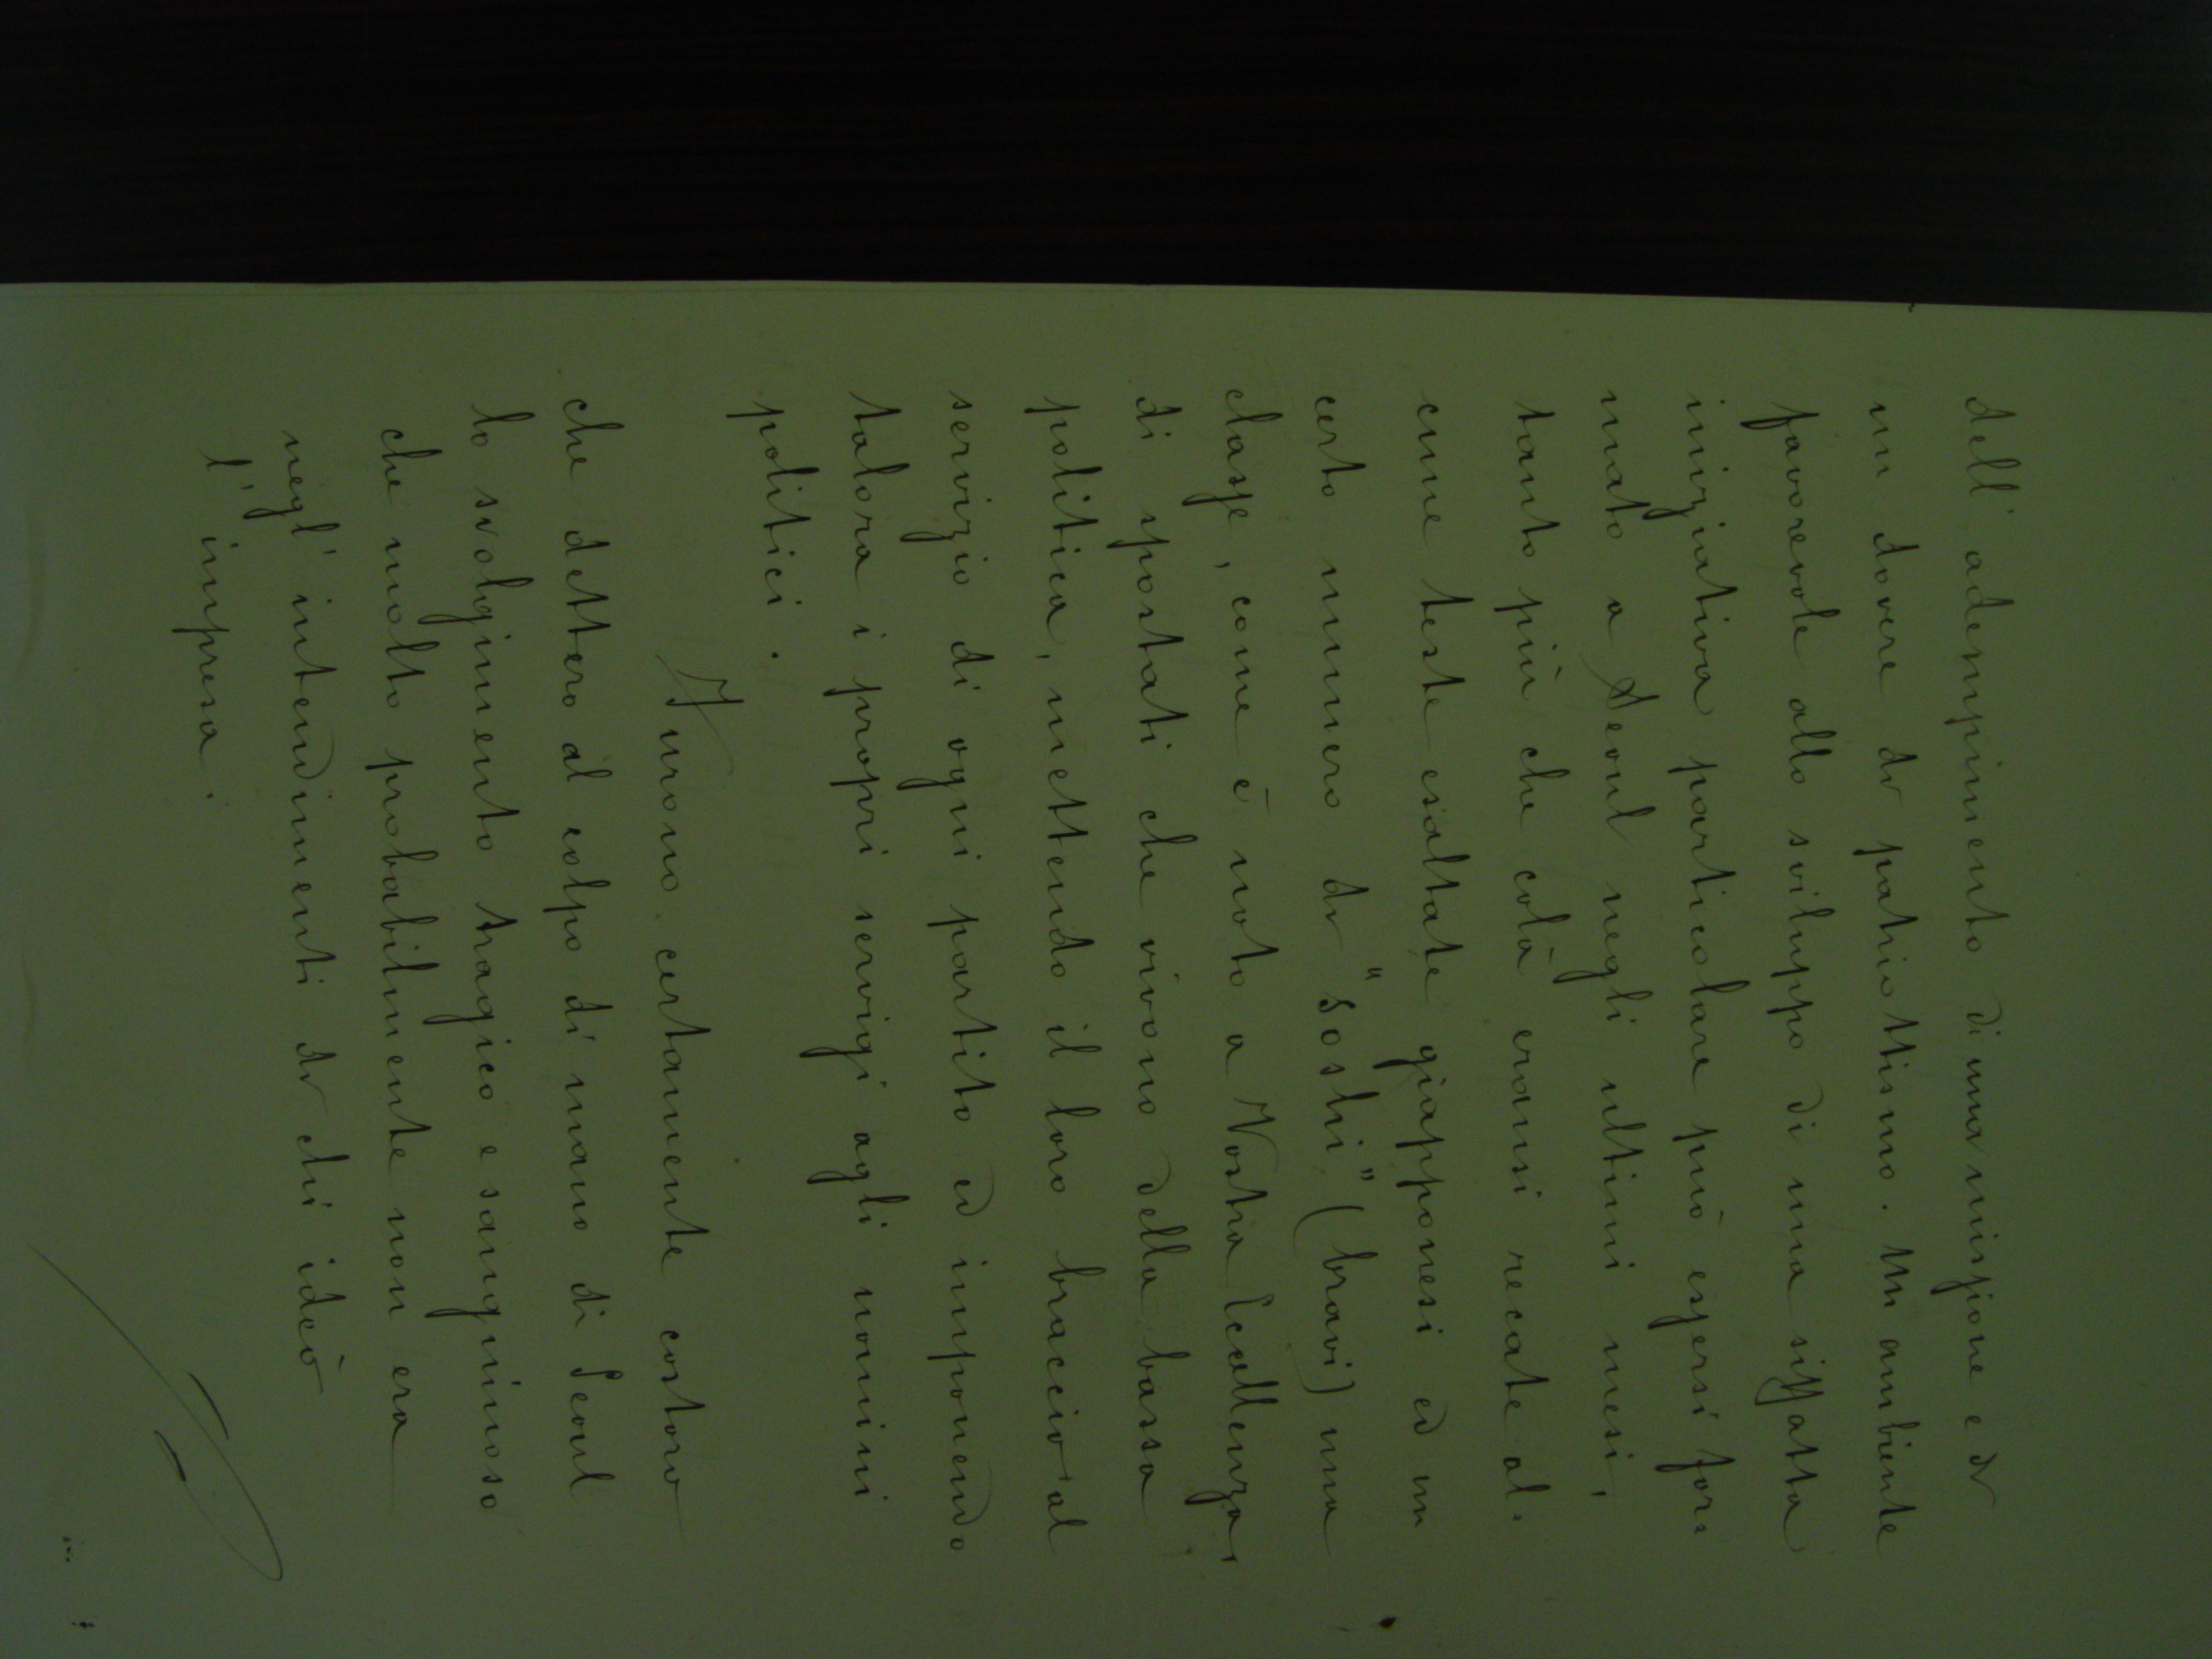 dell' adempimento di una missione e di
un dovere di patriottismo. Un ambiente
favorevole allo sviluppo di una siffatta
iniziativa particolare può essersi for=
mato a Seoul negli ultimi mesi,
tanto più che colà eransi recate al=
cune teste esaltate giapponesi ed un
certo numero di "soshi" (bravi) una
classe, come è noto a Vostra Eccellenza,
di spostati che vivono della bassa
politica, mettendo il loro braccio al
servizio di ogni partito ed imponendo
talora i propri servigi agli uomini
politici.
Furono certamente costoro
che dettero al colpo di mano di Seoul
lo svolgimento tragico e sanguinoso
che molto probabilmente non era
negl' intendimenti di chi ideò
l' impresa.